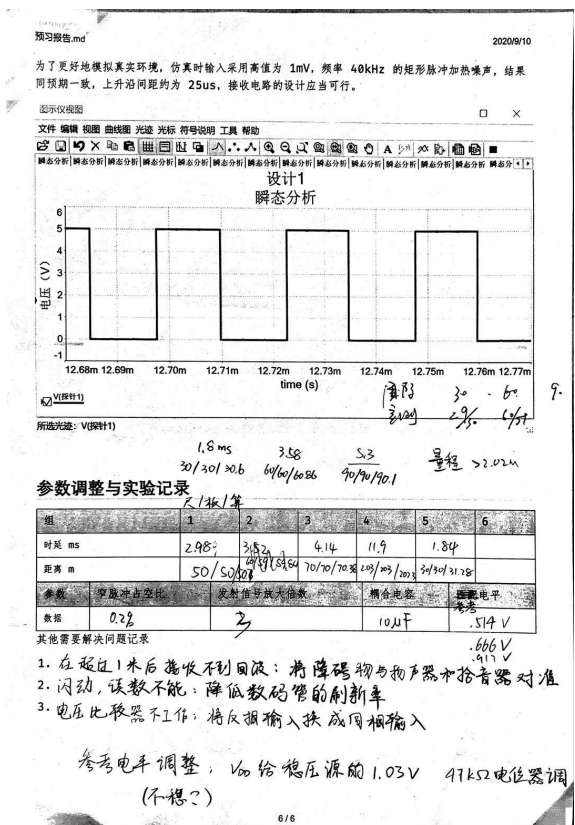 预习报告.md
2020/9/10
为了更好地模拟真实环境，仿真时输入采用高值为 1mV，频率 40kHz 的矩形脉冲加热噪声，结果
同预期一致，上升沿间距约为 25us，接收电路的设计应当可行。
图示仪视图
文件 编辑 视图 曲线图 光迹 光标 符号说明 工具 帮助
瞬态分析 瞬态分析 瞬态分析 瞬态分析 瞬态分析 瞬态分析 瞬态分析 瞬态分析 瞬态分析 瞬态分析 瞬态分析 瞬态分析 瞬态分析 瞬态分
设计1
瞬态分析
电压（V）
6
5
4
3
2
1
0
-1
12.68m 12.69m 12.70m 12.71m 12.72m 12.73m 12.74m 12.75m 12.76m 12.77m
time (s)
V(探针1)
所选光迹：V(探针1)
实际 30 60 9.
1.8ms 3.58 5.3
30/30/30.6 60/60/60.86 90/90/90.1
量程 >2.02m
参数调整与实验记录
尺/板/算
组 1 2 3 4 5 6
时延 ms 2.98 4.14 11.9 1.84
距离 m 50/50/ 70/70/70 203/203/2023 30/30/31.28
参数 窄脉冲占空比 发射信号放大倍数 耦合电容 电平
参考
数据 0.2% 3 10μF .514 V
.666 V
.917 V
其他需要解决问题记录
1. 在超过1米后接收不到回波：将障碍物与扬声器和拾音器对准
2. 闪动，读数不能：降低数码管的刷新率
3. 电压比较器不工作：将反相输入换成同相输入
参考电平调整：VDD给稳压源的1.03V 47kΩ电位器调
(不稳？)
6 / 6